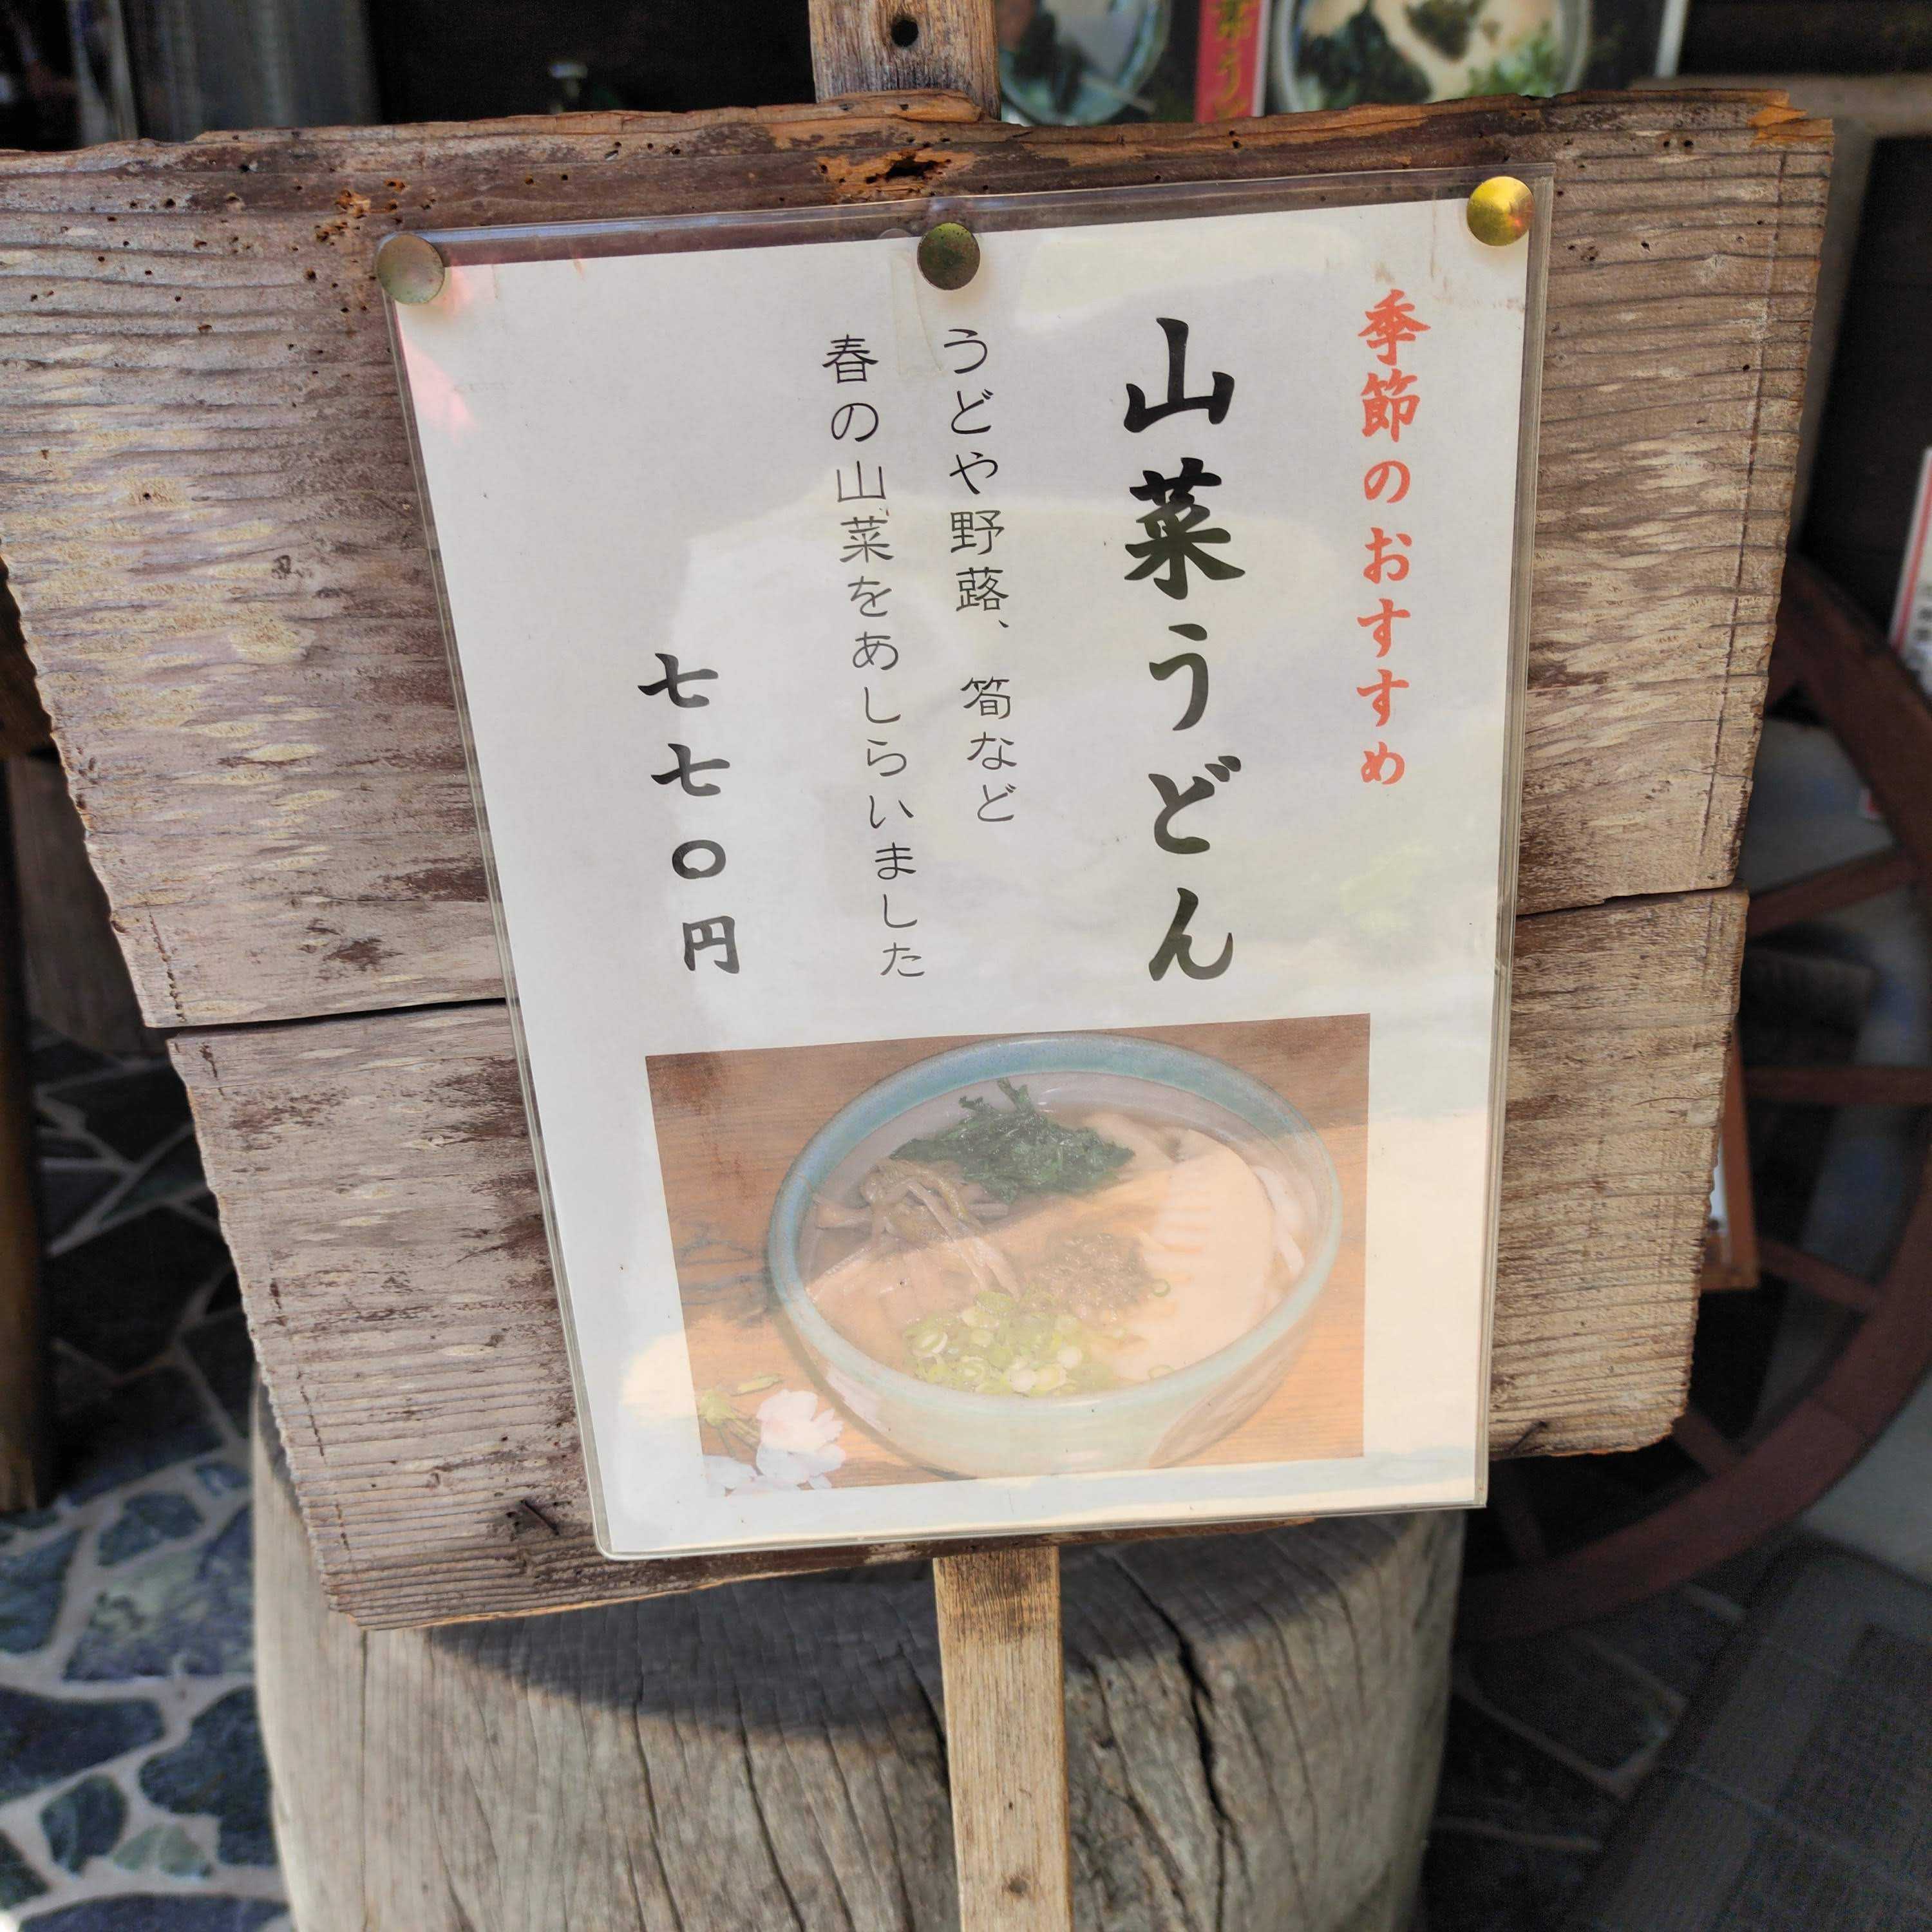 季節のおすすめ
山菜うどん
うどや野蕗、筍など
春の山菜をあしらいました
七七〇円